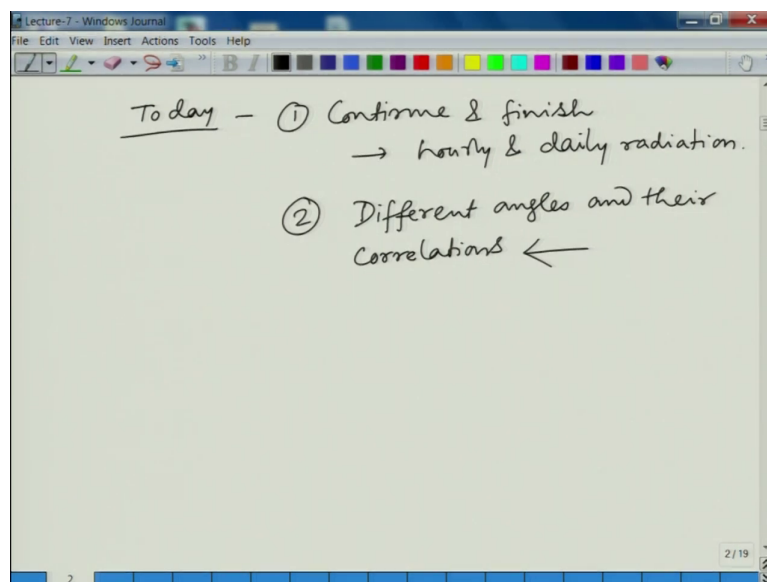 Lecture-7 - Windows Journal
File Edit View Insert Actions Tools Help
Today - ① Continue & finish
→ hourly & daily radiation.
② Different angles and their
correlations ←
2/19
2